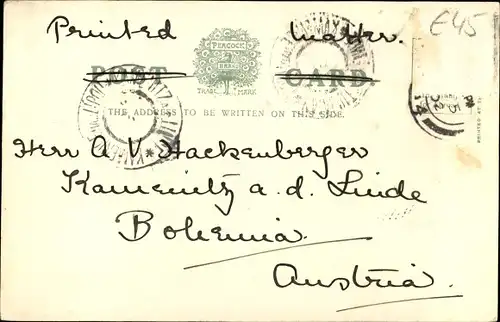 Printed Matter.
£45
PEACOCK
BRAND
TRADE MARK
POST CARD.
THE ADDRESS TO BE WRITTEN ON THIS SIDE.
Herr A. V. Hackenberger
Kamenitz a. d. Linde
Bohemia.
Austria.